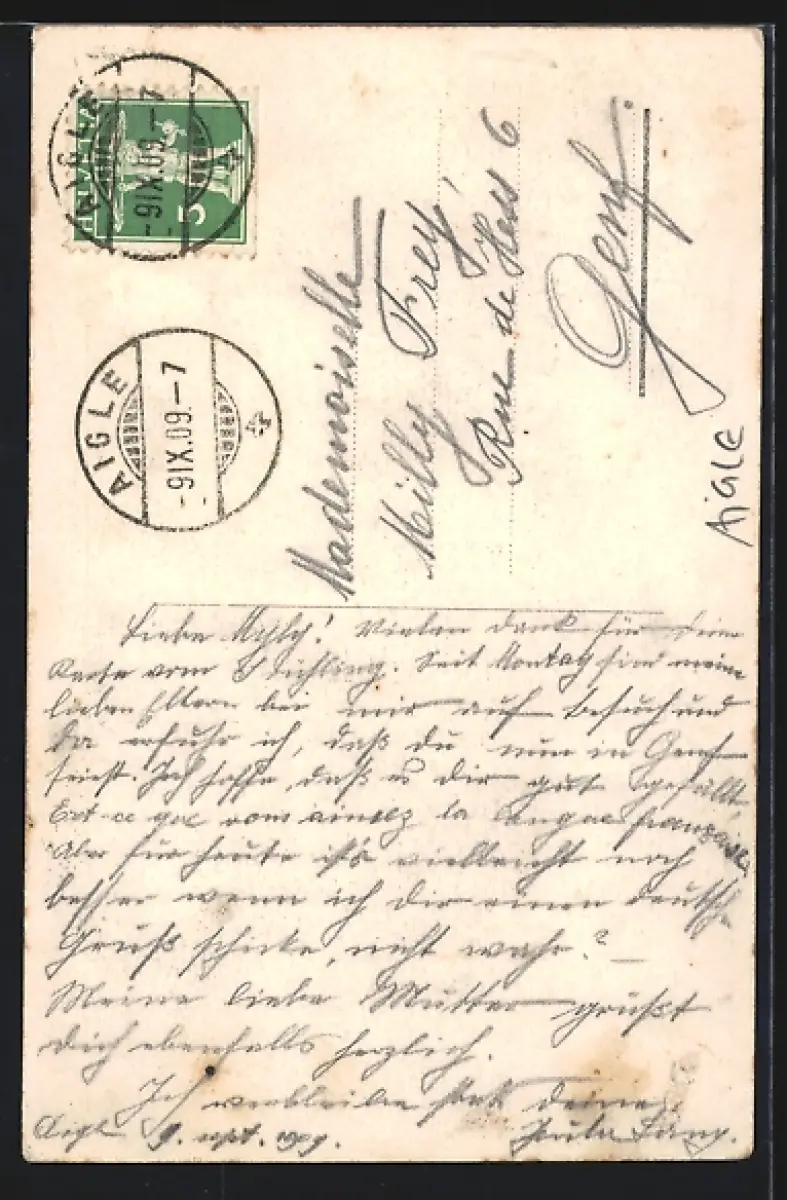 HELVETIA
5
AIGLE
-9IX.09.-7
AIGLE
-9IX.09.-7
Mademoiselle
Milly Frey,
Rue de Hess 6
Genf.
AiGLE
Liebe Mylly! Vielen Dank für deine
Karte vom Seit Montag sind meine
lieben Eltern bei mir auf Besuch und
da erfuhr ich, daß du nun in Genf
seiest. Ich hoffe, daß es dir gut gefällt.
Est-ce que vous aimez la langue française
Aber für heute ist's vielleicht noch
besser wenn ich dir einen deutschen
Gruß schicke, nicht wahr? –
Meine liebe Mutter grüßt
dich ebenfalls herzlich.
Ich verbleibe stets deine
Aigle 9. sept. 1909. Paula Lang.